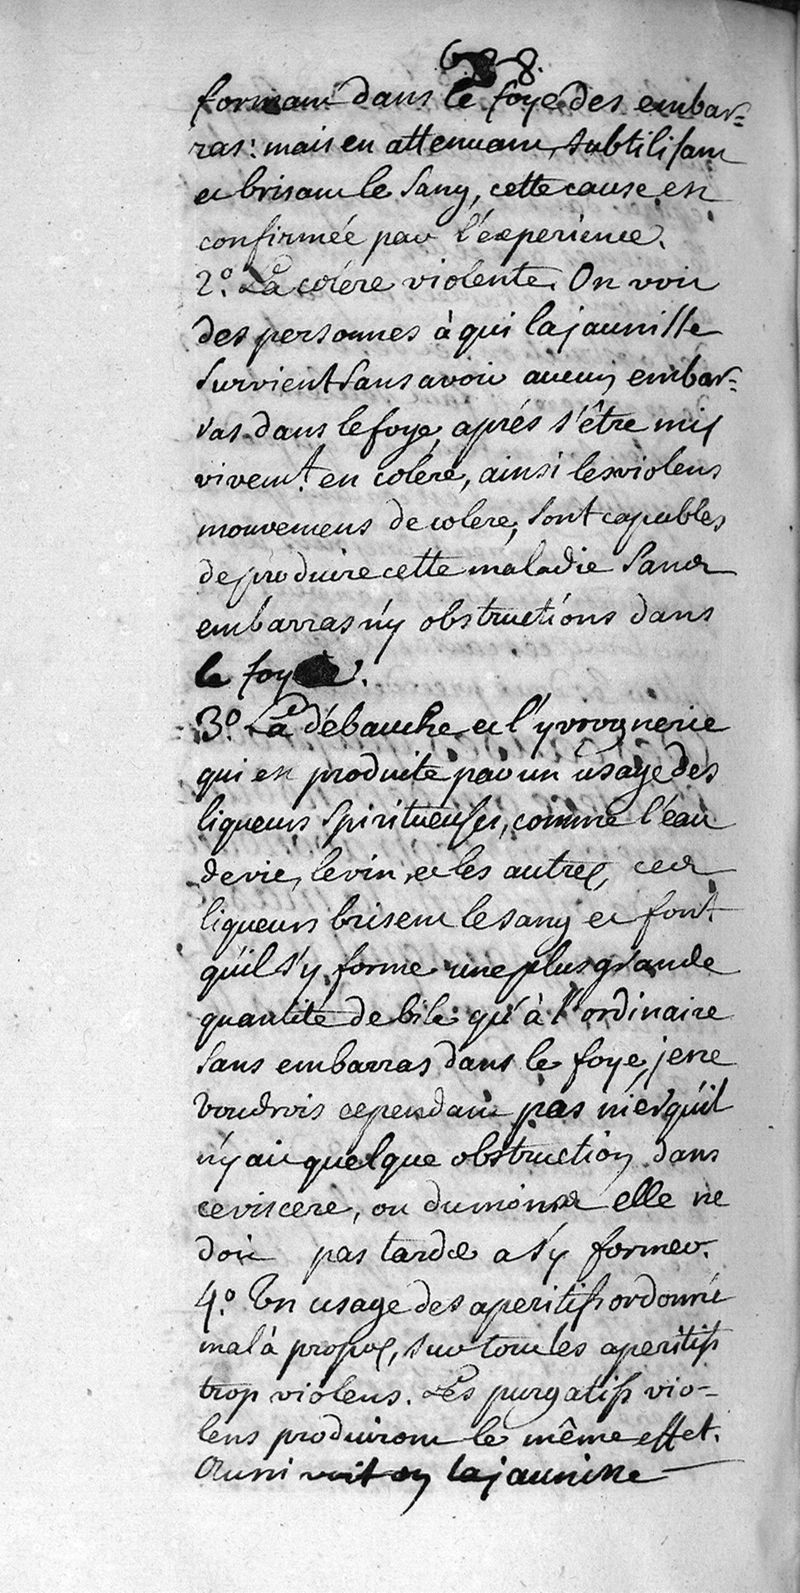 688.
formant dans le foye des embar=
ras: mais en attenuant, subtilisant
et brisant le sang, cette cause est
confirmée par l'experience.
2.° La colére violente. On voit
des personnes à qui la jaunisse
survient sans avoir aucun embar=
ras dans le foye, aprés s'être mis
vivemt. en colére, ainsi les violens
mouvemens de colere, sont capables
de produire cette maladie sans
embarras n'y obstructions dans
le foye.
3.° La débauche et l'yvrognerie
qui est produite par un usage des
liqueurs spiritueuses, comme l'eau
de vie, le vin, et les autres, ces
liqueurs brisent le sang et font
qu'il s'y forme une plus grande
quantité de bile qu'à l'ordinaire
sans embarras dans le foye, je ne
voudrois cependant pas nier qu'il
n'y ait quelque obstruction dans
ce viscere, ou du moins elle ne
doit pas tarder a s'y former.
4.° Un usage des aperitifs ordonné
mal à propos, sur tout les aperitifs
trop violens. Les purgatifs vio-
lens produiront le même effet.
Aussi voit on la jaunisse